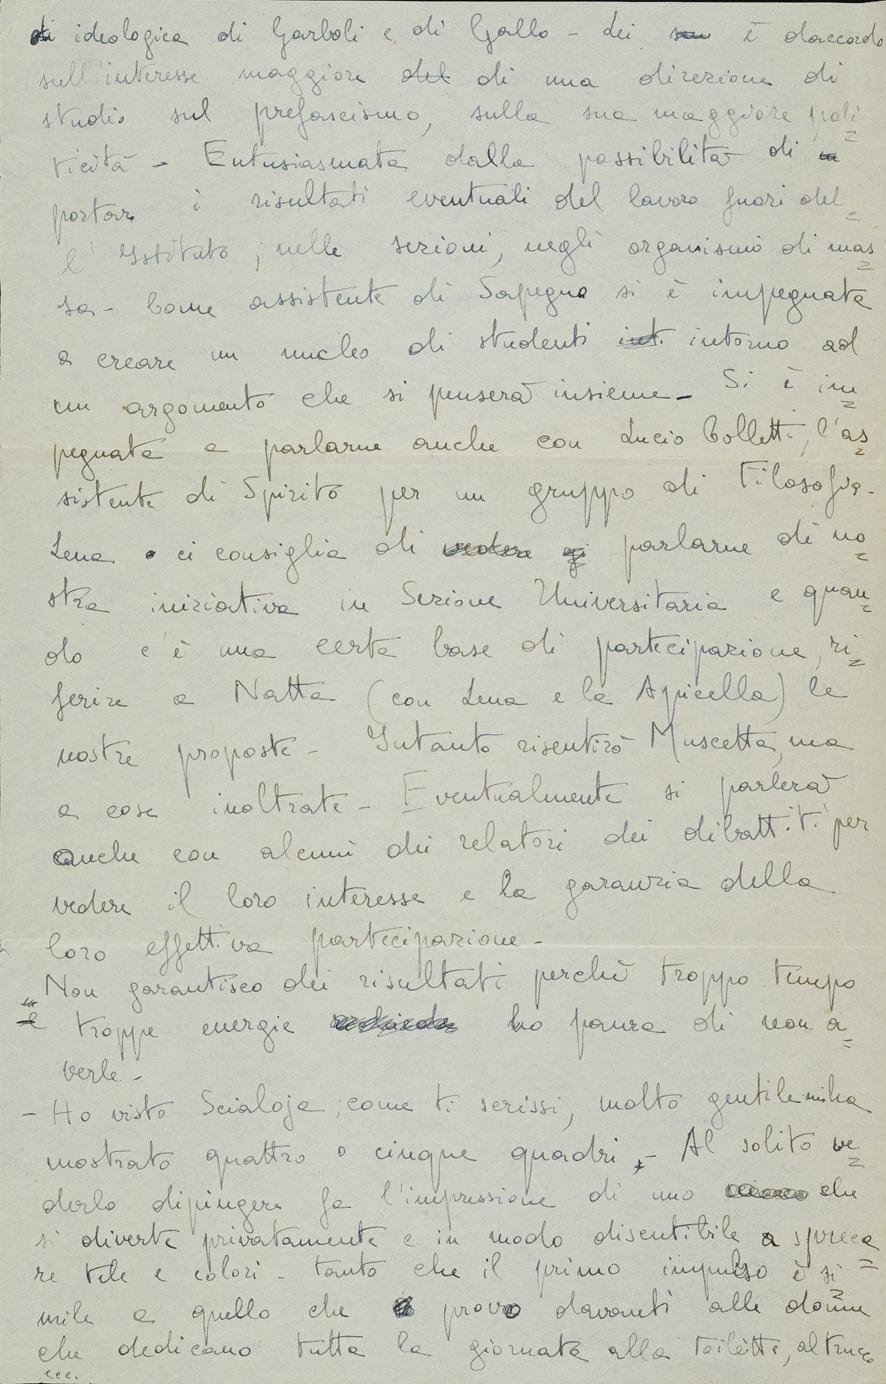 di ideologica di Garboli e di Gallo - Lei è daccordo
sull'interesse maggiore del di una direzione di
studio sul prefascismo, sulla sua maggiore poli=
ticità - Entusiasmata dalla possibilità di
portare i risultati eventuali del lavoro fuori del=
l'Istituto, nelle sezioni, negli organismi di mas=
sa - Come assistente di Sapegno si è impegnata
a creare un nucleo di studenti int. intorno ad
un argomento che si penserà insieme - Si è im=
pegnata a parlarne anche con Lucio Colletti, l'as=
sistente di Spirito per un gruppo di Filosofia -
Lena ci consiglia di vedere parlarne di no=
stra iniziativa in Sezione Universitaria e quan=
do c'è una certa base di partecipazione, ri=
ferire a Natta (con Lena e la Apicella) le
nostre proposte - Intanto risentirò Muscetta, ma
a cose inoltrate - Eventualmente si parlerà
anche con alcuni dei relatori dei dibattiti per
vedere il loro interesse e la garanzia della
loro effettiva partecipazione -
Non garantisco dei risultati perchè troppo tempo
e troppe energie ho paura di non a=
verle -
- Ho visto Scialoja, come ti scrissi, molto gentile mi ha
mostrato quattro o cinque quadri - Al solito ve=
derlo dipingere fa l'impressione di uno che
si diverte privatamente e in modo discutibile a spreca=
re tele e colori - tanto che il primo impulso è si=
mile a quello che provo davanti alle donne
che dedicano tutta la giornata alla toilètte, al trucco
ecc.